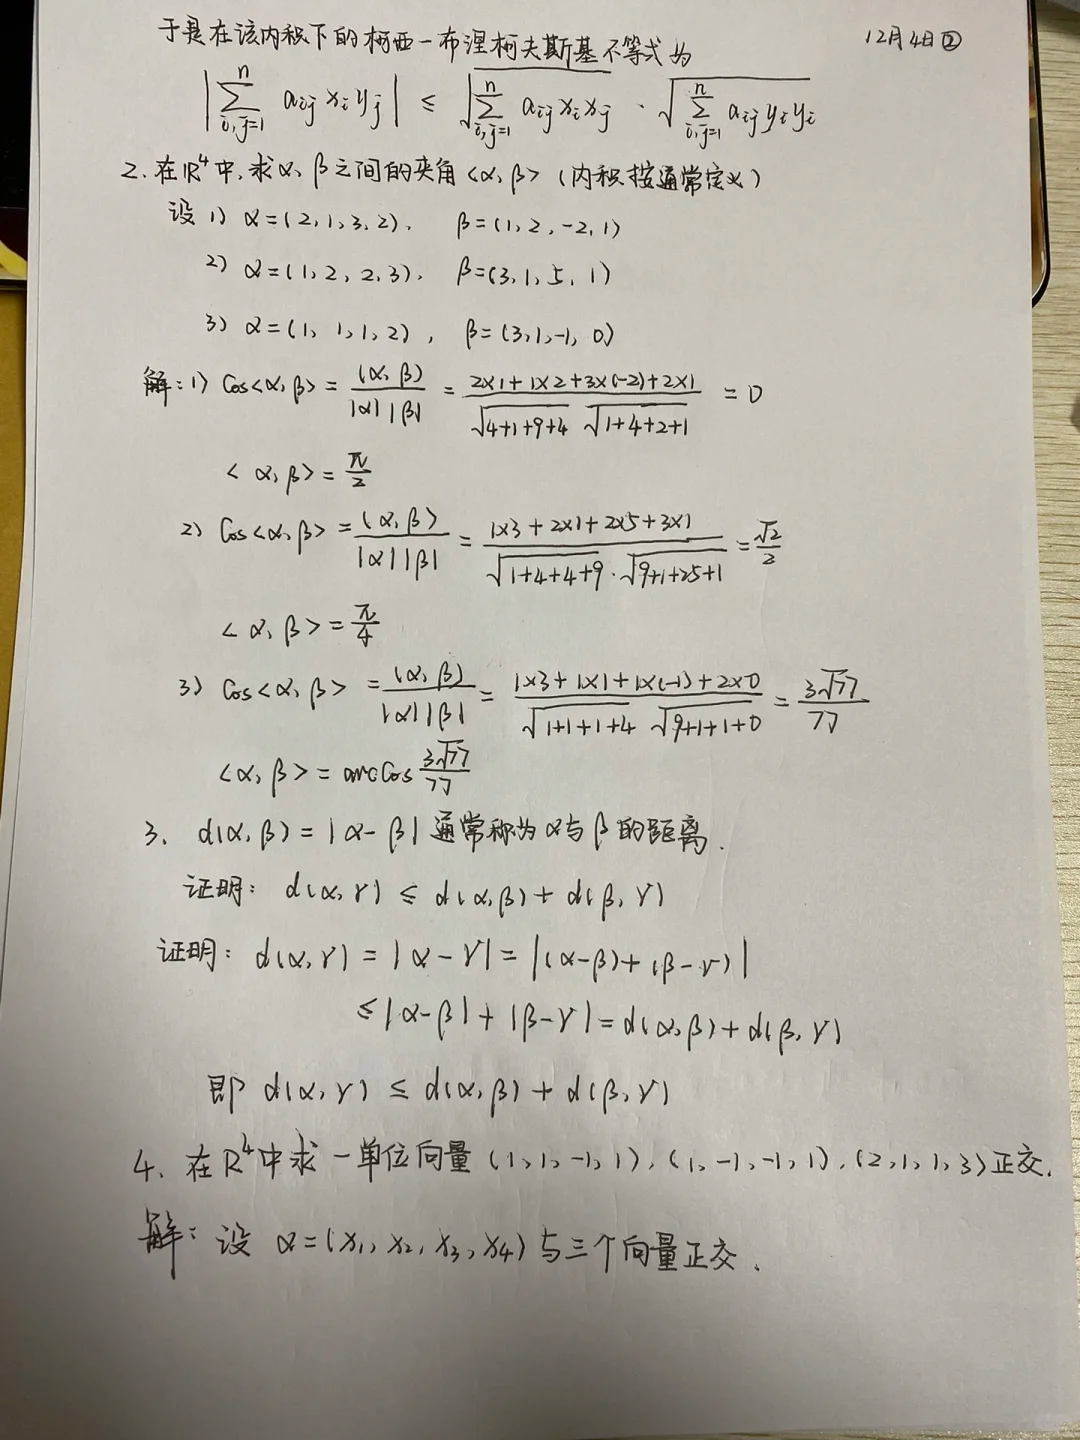 12月4日②
于是在该内积下的柯西-布涅柯夫斯基不等式为
|∑_{i,j=1}^{n} a_{ij} x_i y_j| ≤ √(∑_{i,j=1}^{n} a_{ij} x_i x_j) · √(∑_{i,j=1}^{n} a_{ij} y_i y_i)
2. 在R⁴中,求α、β之间的夹角<α,β>(内积按通常定义)
设 1) α=(2,1,3,2), β=(1,2,-2,1)
2) α=(1,2,2,3), β=(3,1,5,1)
3) α=(1,1,1,2), β=(3,1,-1,0)
解:1) Cos<α,β> = (α,β)/(|α||β|) = (2×1+1×2+3×(-2)+2×1)/(√(4+1+9+4) √(1+4+2+1)) = 0
<α,β> = π/2
2) Cos<α,β> = (α,β)/(|α||β|) = (1×3+2×1+2×5+3×1)/(√(1+4+4+9)·√(9+1+25+1)) = √2/2
<α,β> = π/4
3) Cos<α,β> = (α,β)/(|α||β|) = (1×3+1×1+1×(-1)+2×0)/(√(1+1+1+4) √(9+1+1+0)) = 3√77/77
<α,β> = arcCos 3√77/77
3. d(α,β)=|α-β| 通常称为α与β的距离.
证明: d(α,γ) ≤ d(α,β)+d(β,γ)
证明: d(α,γ) = |α-γ| = |(α-β)+(β-γ)|
≤|α-β|+|β-γ|=d(α,β)+d(β,γ)
即 d(α,γ) ≤ d(α,β)+d(β,γ)
4. 在R⁴中求一单位向量(1,1,-1,1),(1,-1,-1,1),(2,1,1,3)正交.
解: 设 α=(x₁,x₂,x₃,x₄)与三个向量正交.